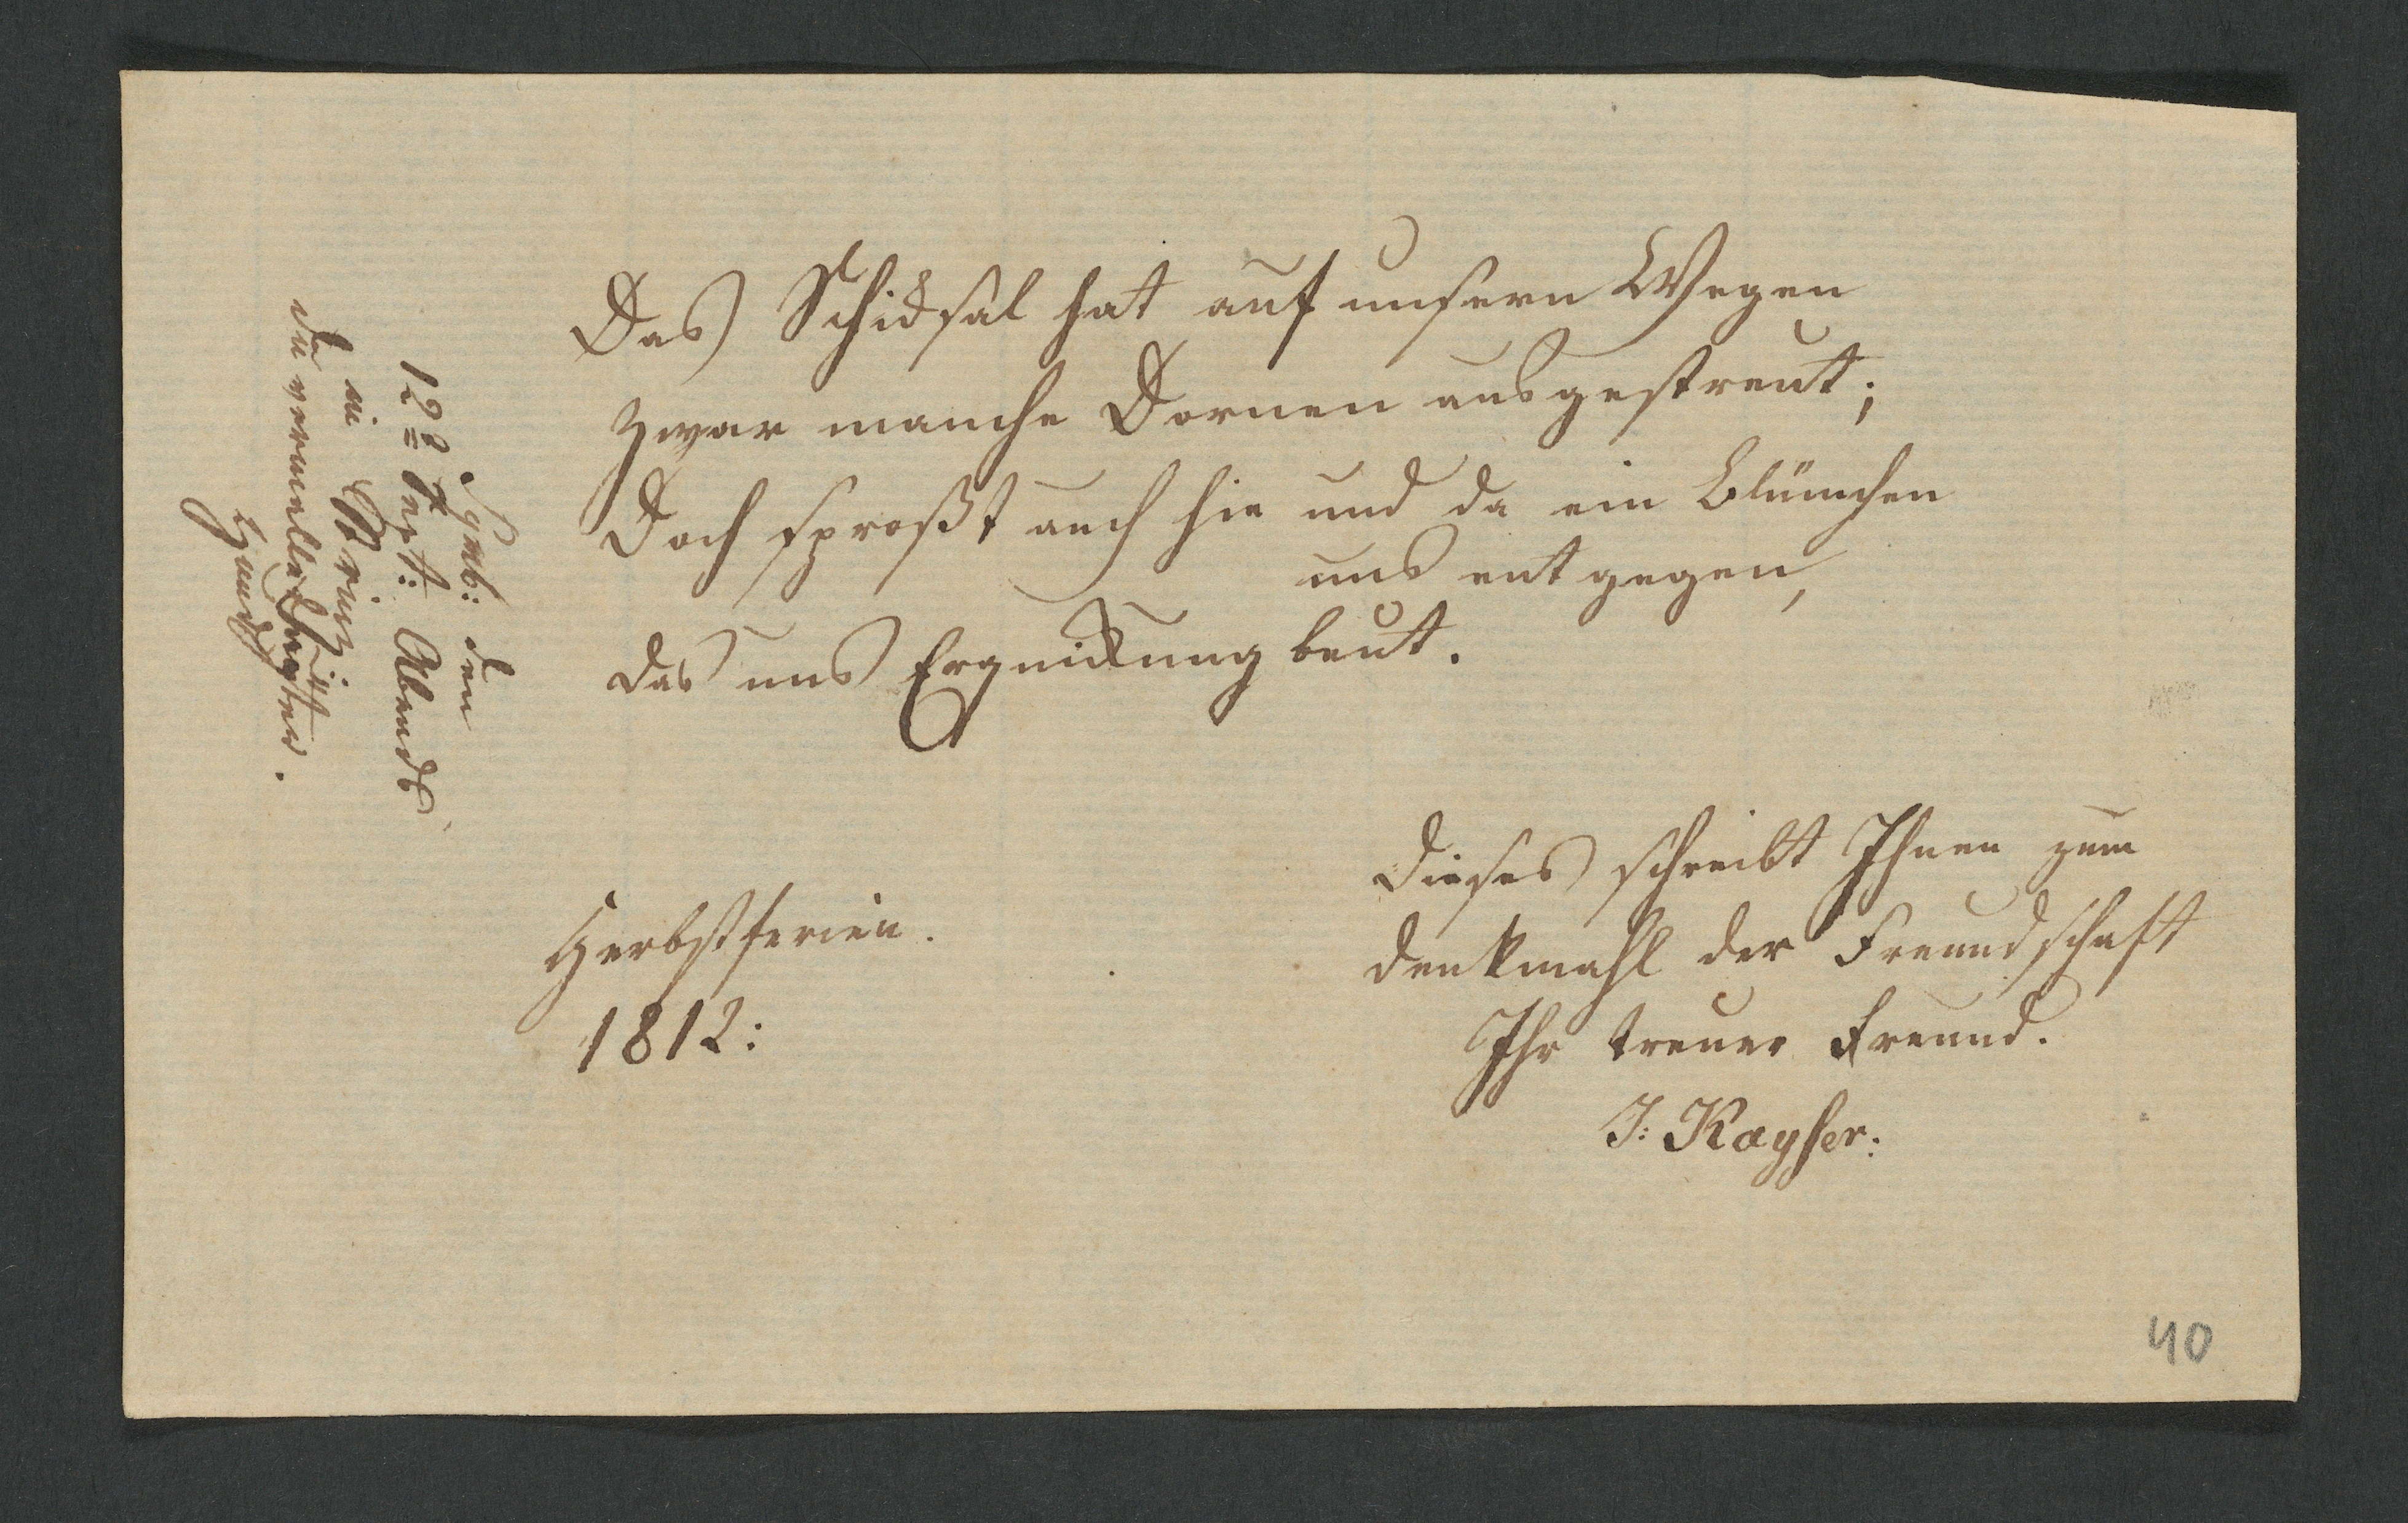 Das Schicksal hat auf unsern Wegen
zwar manche Dornen ausgestreut;
Doch sproßt auch hie und da ein Blümchen
uns entgegen,
das uns Erquickung beut.
Dieses schreibt Ihnen zum
denkmahl der Freundschaft
Ihr treuer Freund.
J: Kayser:
Herbstferien.
1812:
den
12= Sept: Abends
in
du
40